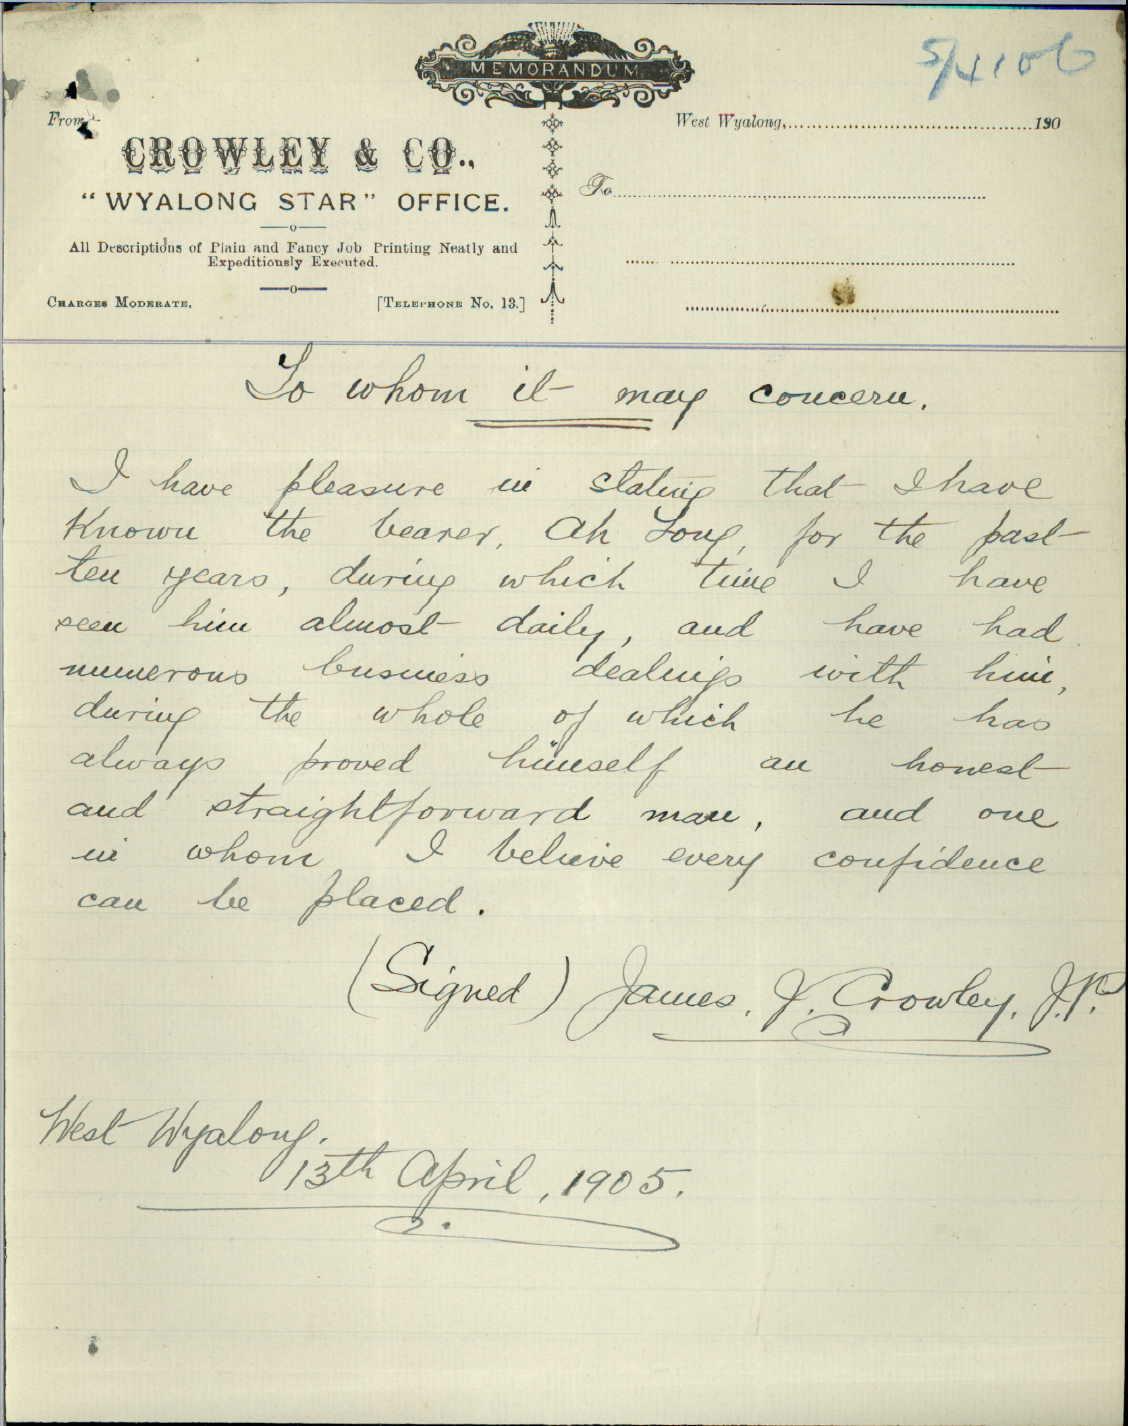 MEMORANDUM
5/4106
From
West Wyalong, 190
CROWLEY & CO.,
To
"WYALONG STAR" OFFICE.
All Descriptions of Plain and Fancy Job Printing Neatly and
Expeditiously Executed.
CHARGES MODERATE. [TELEPHONE No. 13.]
To whom it may concern.
I have pleasure in stating that I have
known the bearer, Ah Long, for the past
ten years, during which time I have
seen him almost daily, and have had
numerous business dealings with him,
during the whole of which he has
always proved himself an honest
and straightforward man, and one
in whom I believe every confidence
can be placed.
(Signed) James. J. Crowley, J.P.
West Wyalong.
13th April, 1905.